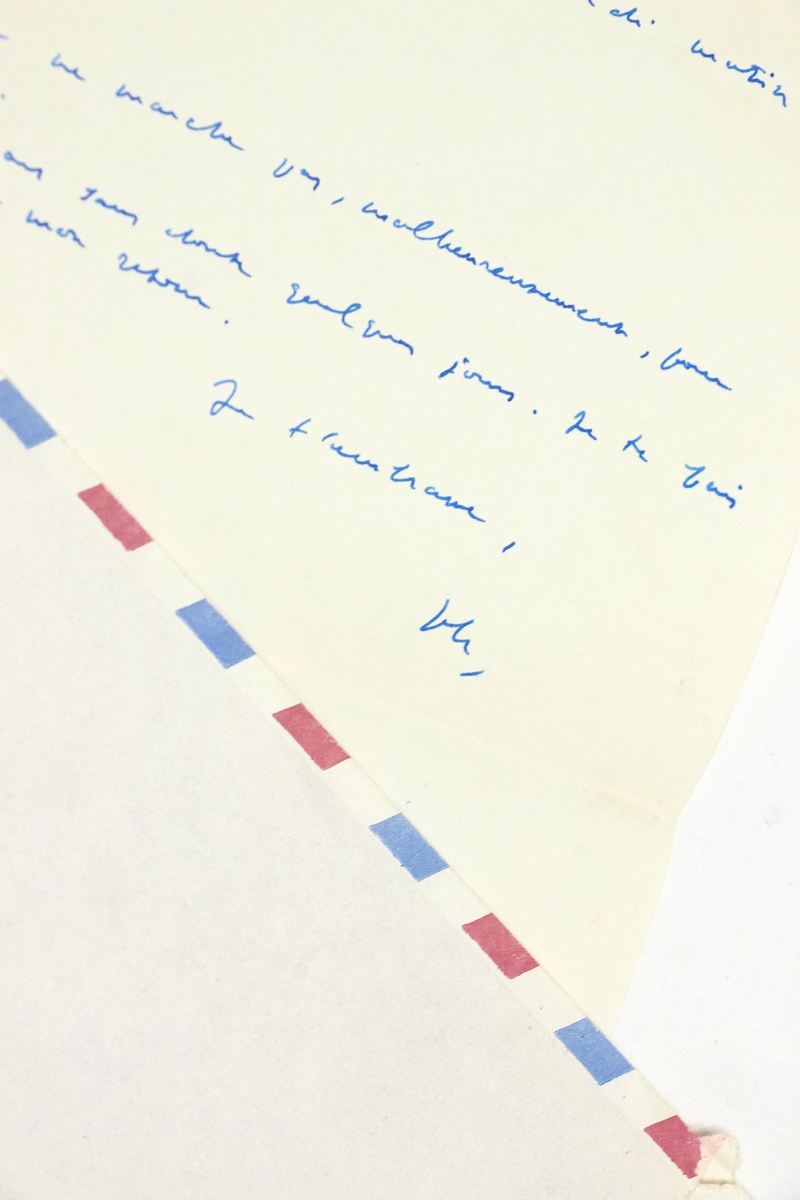 matin
ne marche pas, malheureusement, pour
sans doute quelques jours. Je te fais
mon retour.
Je t'embrasse,